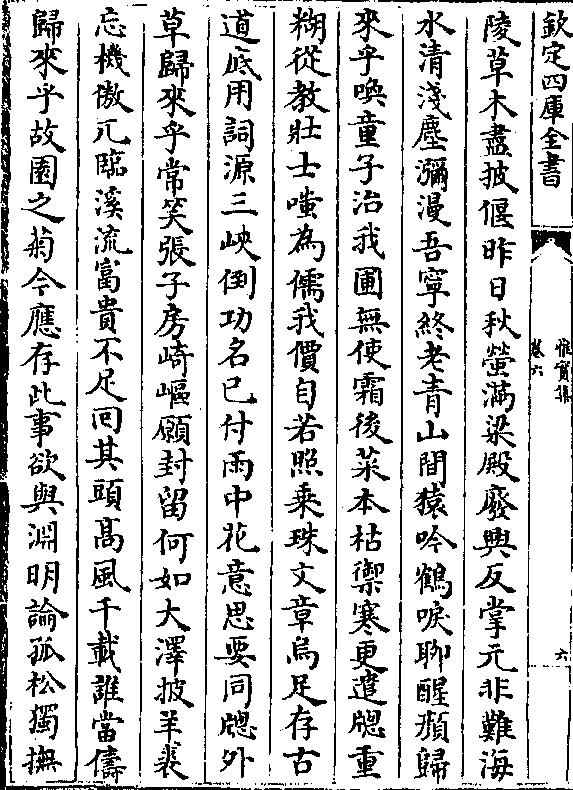 欽定四庫全書
惟實集
卷六
六
陵草木盡披偃昨日秋螢滿梁殿廢興反掌元非難海
水清淺塵瀰漫吾寧終老青山間猿吟鶴唳聊醒頑歸
來乎喚童子治我圃無使霜後菜本枯禦寒更遣牕重
糊從教壯士嗤為儒我價自若照乗珠文章烏足存古
道底用詞源三峽倒功名已付雨中花意思要同牕外
草歸來乎常笑張子房崎嶇願封留何如大澤披羊裘
忘機傲兀臨溪流富貴不足回其頭髙風千載誰當儔
歸來乎故園之菊今應存此事欲與淵明論孤松獨撫